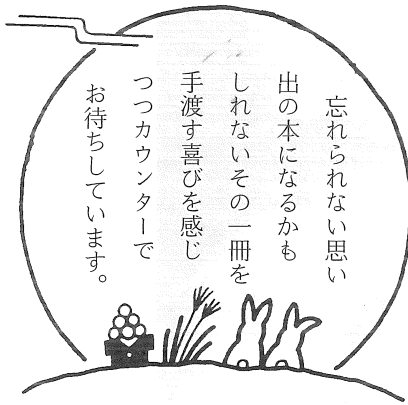 忘れられない思い
出の本になるかも
しれないその一冊を
手渡す喜びを感じ
つつカウンターで
お待ちしています。